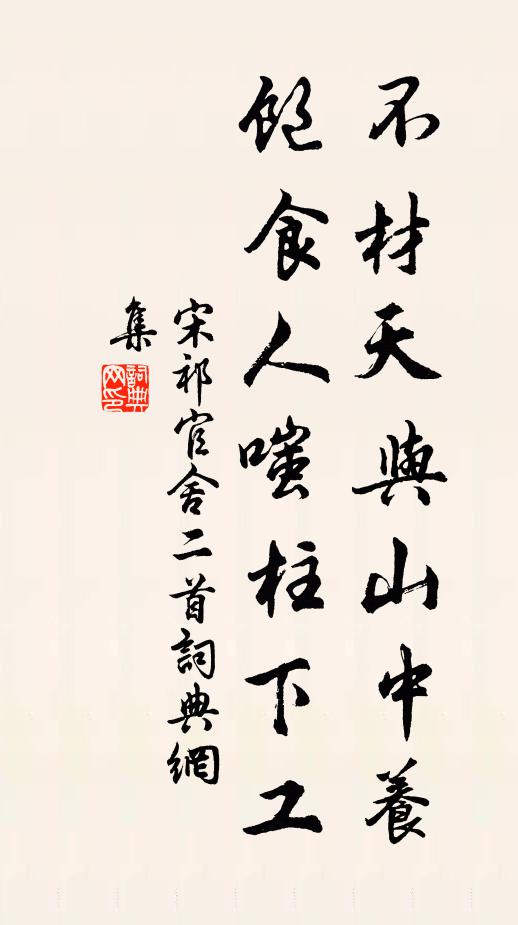 不材天與山中養
飽食人嗤柱下工
宋祁官舍二首詞典網
集
詞典网印